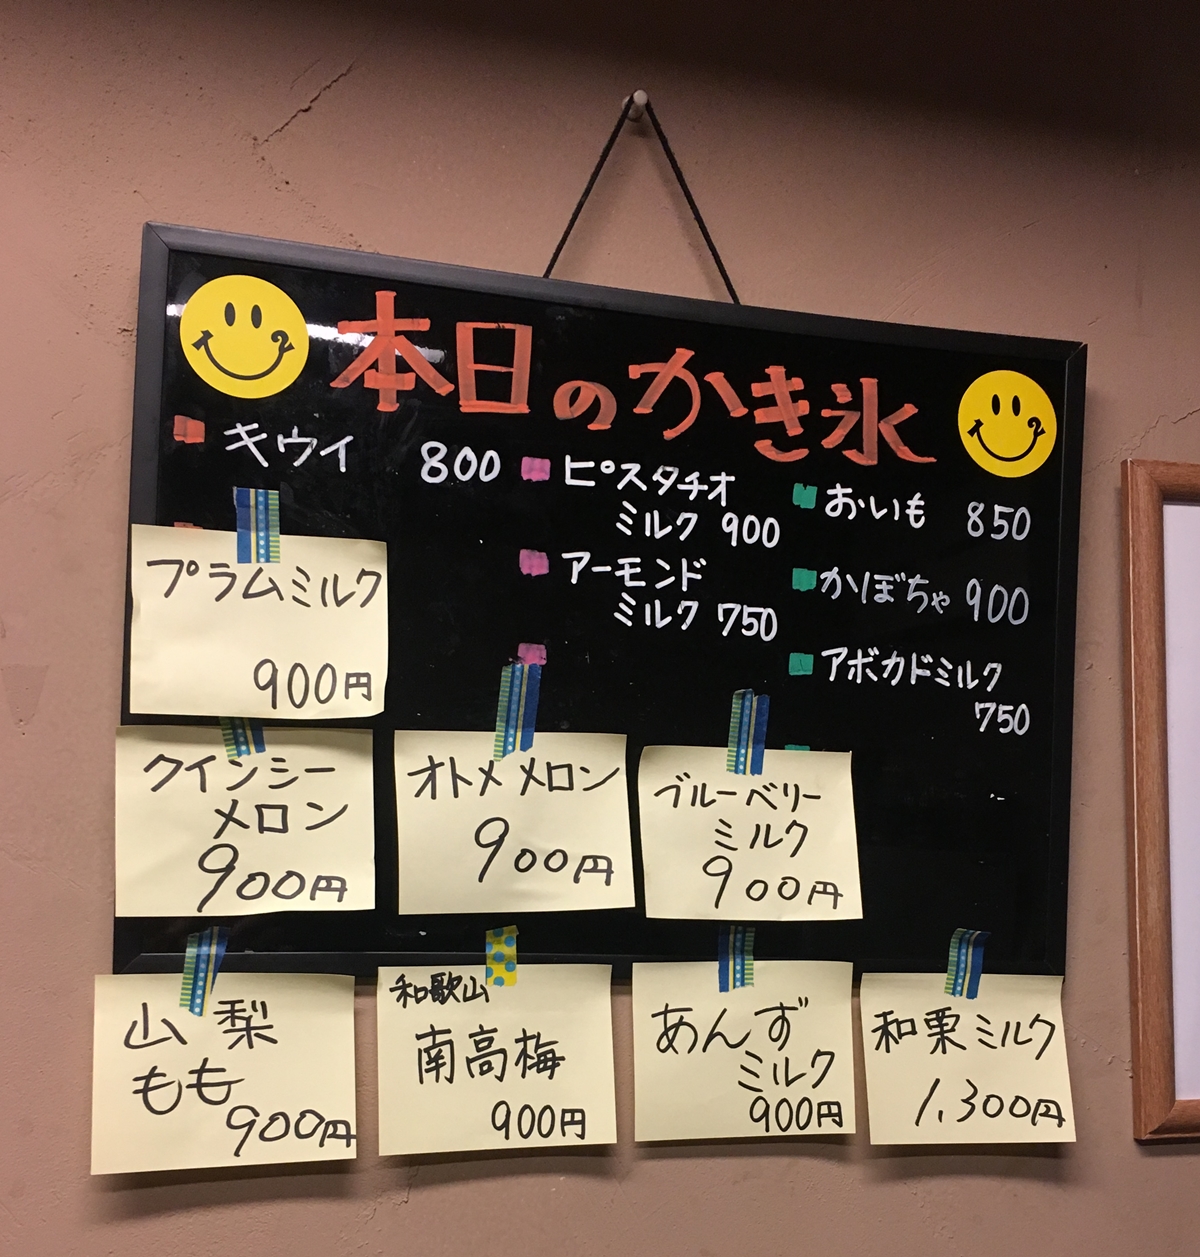 本日のかき氷
キウイ 800
ピスタチオ
ミルク 900
アーモンド
ミルク 750
おいも 850
かぼちゃ 900
アボカドミルク
750
プラムミルク
900円
クインシー
メロン
900円
オトメメロン
900円
ブルーベリー
ミルク
900円
山梨
もも
900円
和歌山
南高梅
900円
あんず
ミルク
900円
和栗ミルク
1,300円